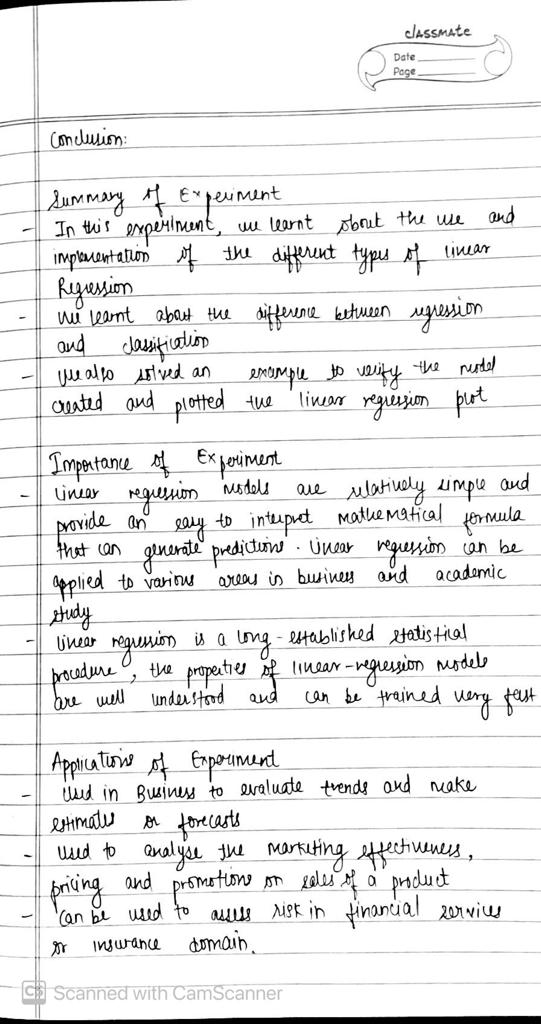 classmate
Date
Page
Conclusion:
Summary of Experiment
- In this experiment, we learnt about the use and
implementation of the different types of linear
Regression
- We learnt about the difference between regression
and classification
- We also solved an example to verify the model
created and plotted the linear regression plot
Importance of Experiment
- Linear regression models are relatively simple and
provide an easy to interpret mathematical formula
that can generate predictions. Linear regression can be
applied to various areas in business and academic
study
- linear regression is a long-established statistical
procedure, the properties of linear-regression models
are well understood and can be trained very fast
Applications of Experiment
- Used in Business to evaluate trends and make
estimates or forecasts
- Used to analyse the marketing effectiveness,
pricing and promotions on sales of a product
- Can be used to assess risk in financial services
or insurance domain.
CS Scanned with CamScanner